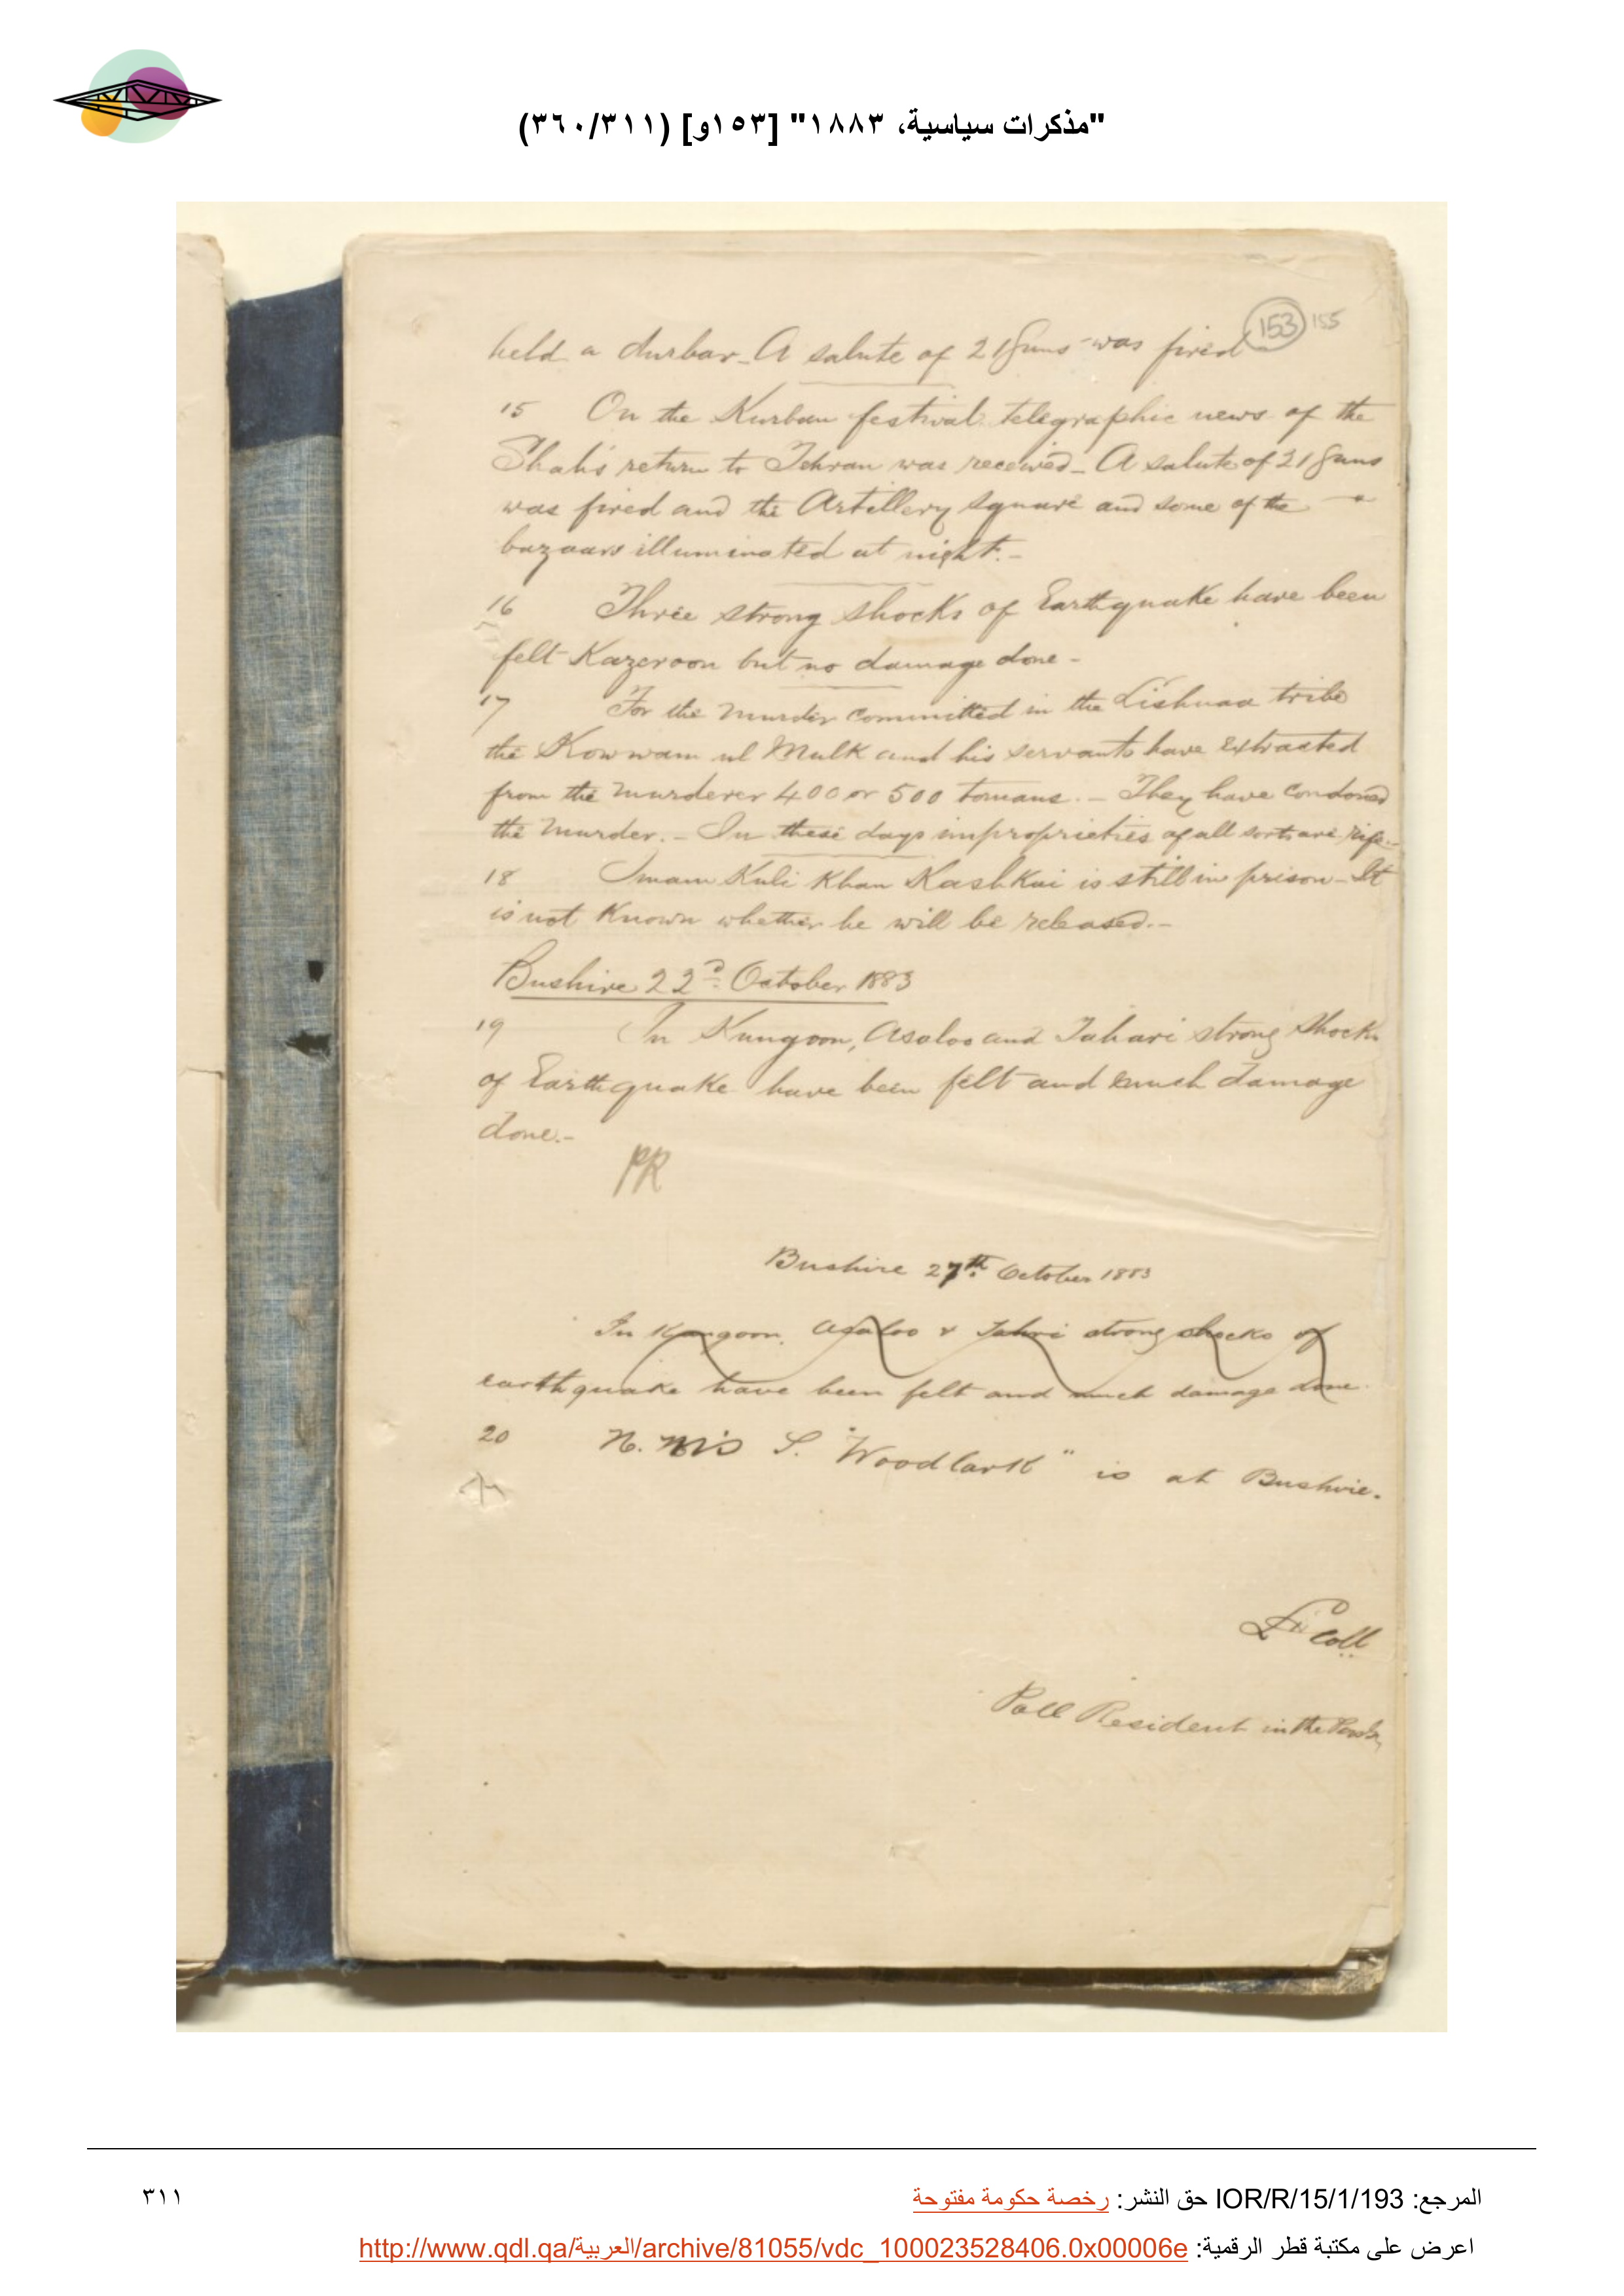 "مذكرات سياسية، ١٨٨٣" [١٥٣و] (٣٦٠/٣١١)
153 155
held a durbar _ A salute of 21 guns was fired
15 On the Kurban festival telegraphic news of the
Shah's return to Tehran was received _ A salute of 21 guns
was fired and the Artillery square and some of the
bazaars illuminated at night. -
16 Three strong shocks of Earthquake have been
felt Kazeroon but no damage done -
17 For the murder committed in the tribe
the Kowwam ul Mulk and his servants have extracted
from the murderer 400 or 500 tomans. - They have condoned
the murder. - In these days improprieties of all sorts are rife. -
18 Imam Kuli Khan Kashkai is still in prison - It
is not Known whether he will be released. -
Bushire 22d. October 1883
19 In Kungoon, Asaloo and Tahari strong shocks
of Earthquake have been felt and much damage
done. -
PR
Bushire 27th. October 1883
In Kangoon, Asaloo & Tahri strong shocks of
earthquake have been felt and much damage done.
20 H. M's S. "Woodlark" is at Bushire.
Lt. Coll.
Poll Resident in the
المرجع: IOR/R/15/1/193 حق النشر: رخصة حكومة مفتوحة
٣١١
اعرض على مكتبة قطر الرقمية: http://www.qdl.qa/العربية/archive/81055/vdc_100023528406.0x00006e